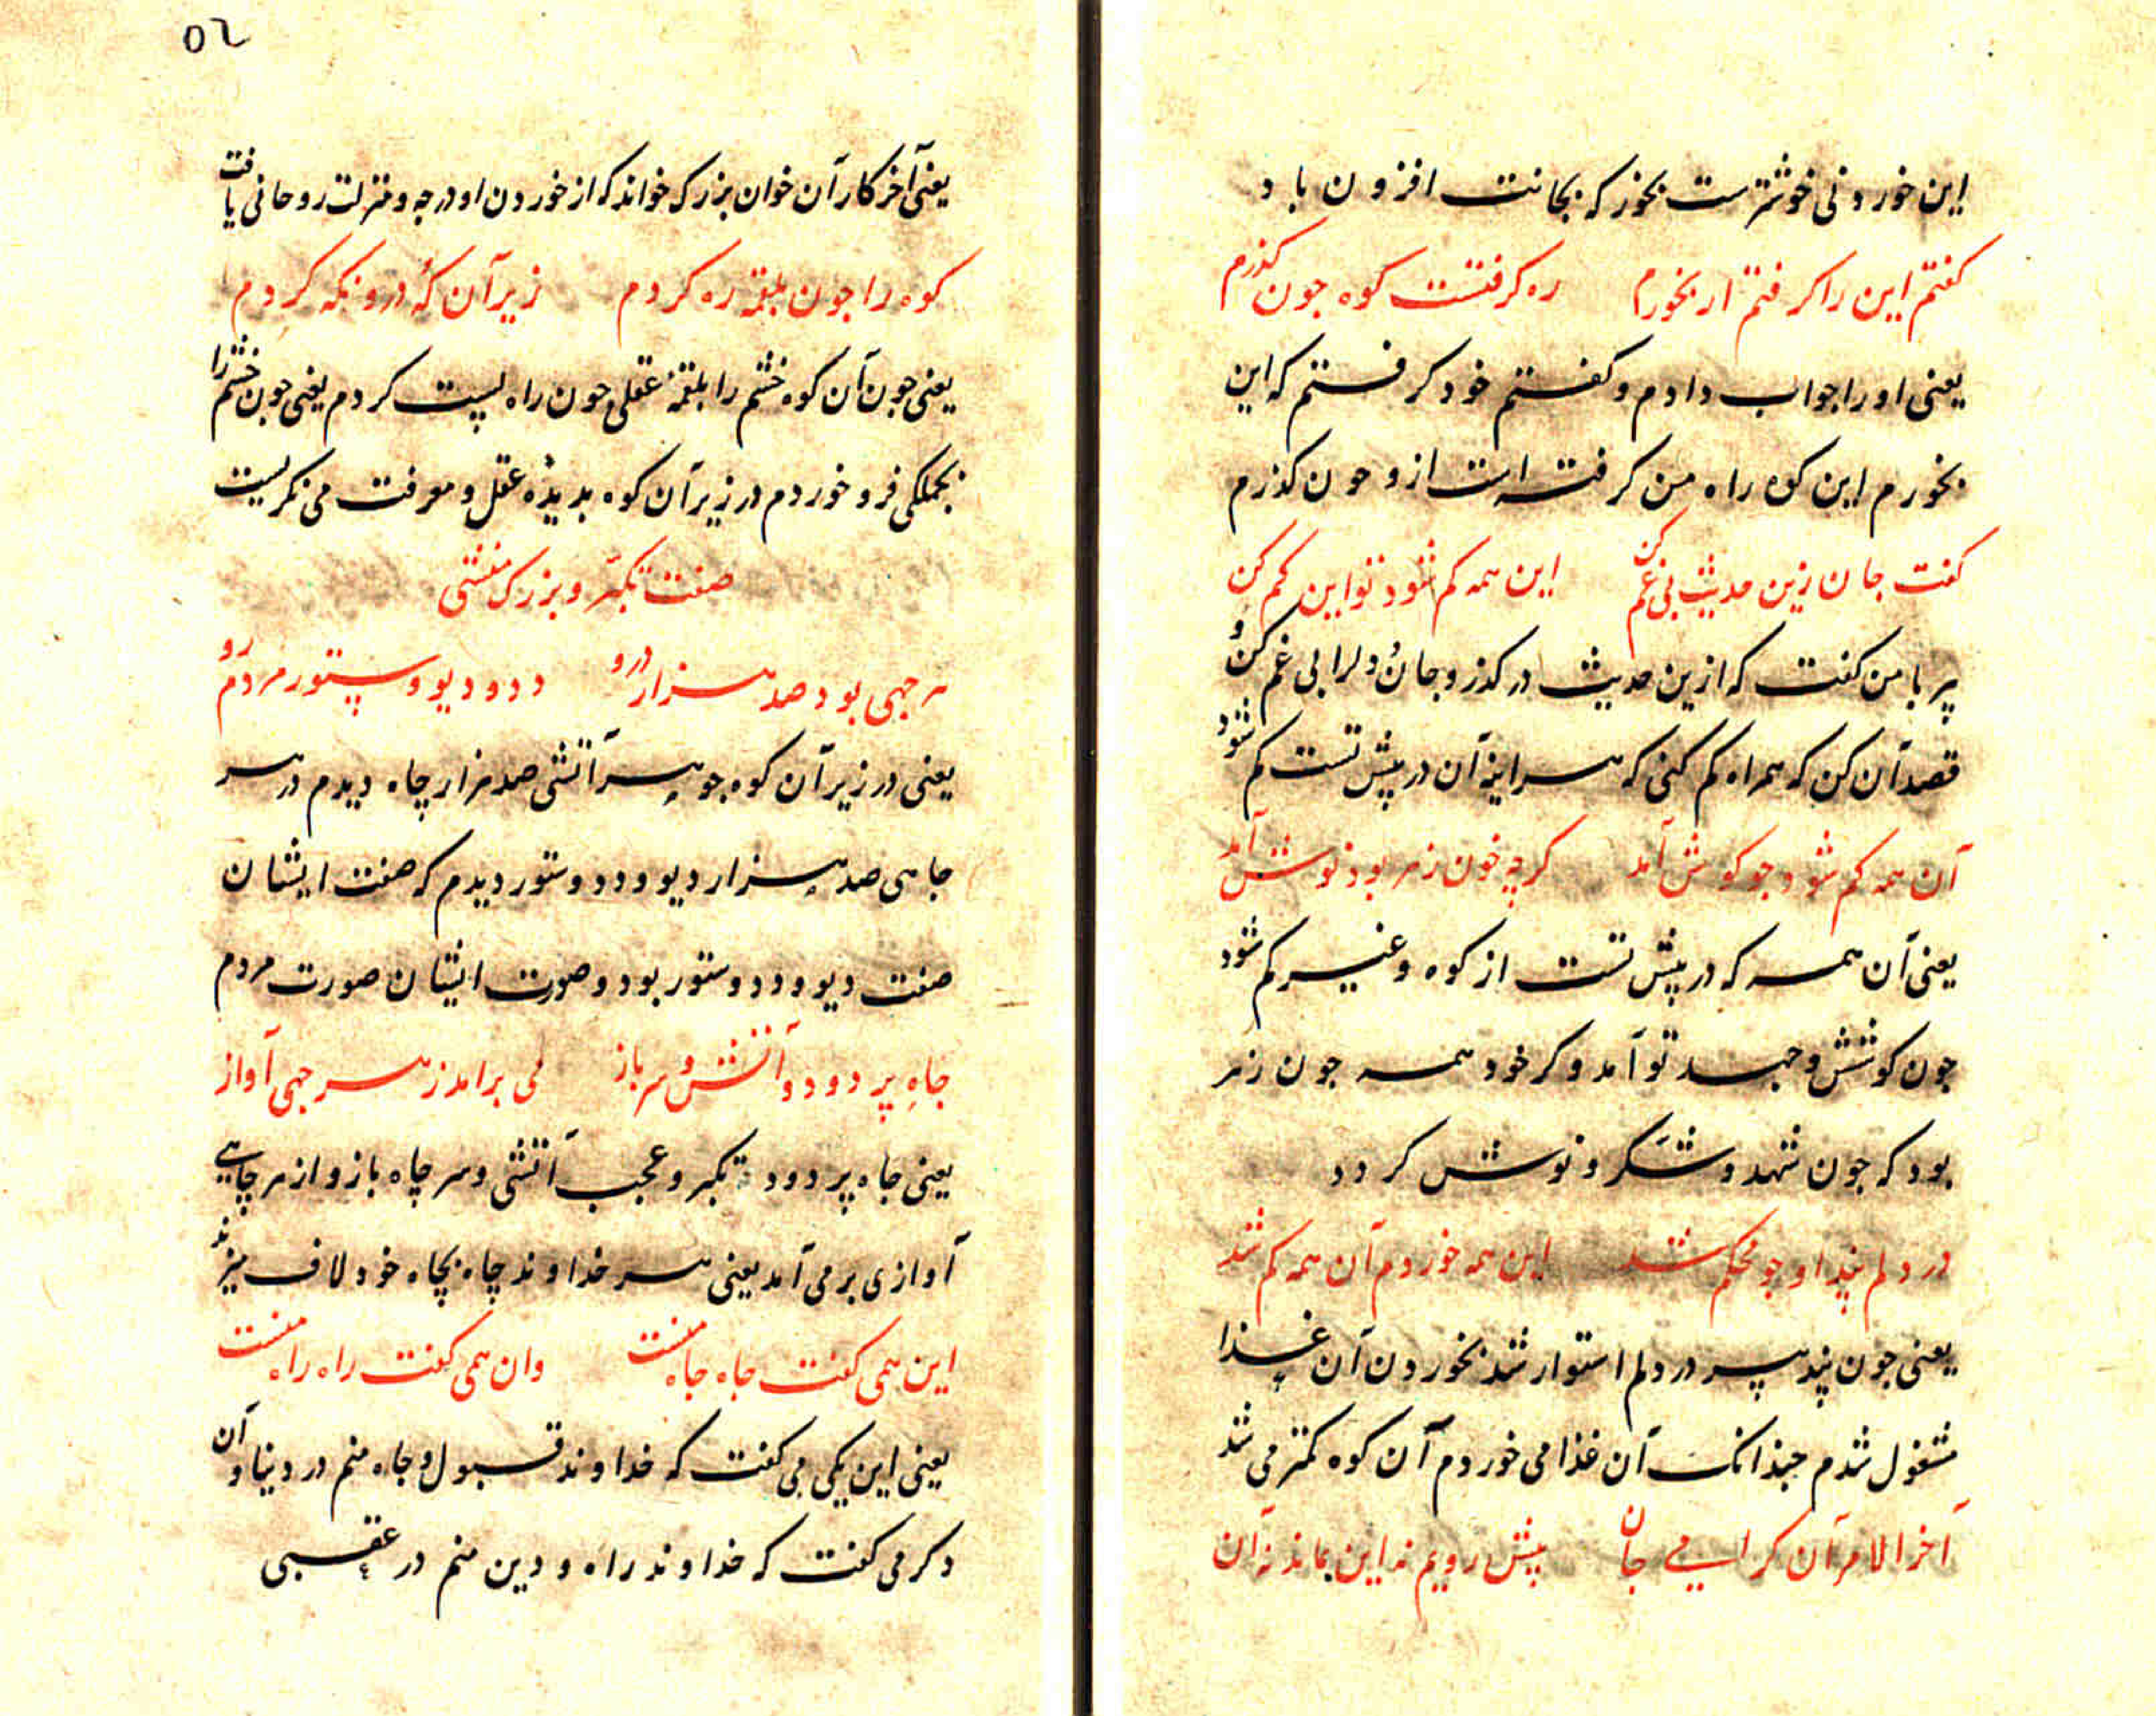 این خوردنی خوشترست بخور که بجانت افزون باد
کفتم این را کرفتم ار بخورم ره کرفتست کوه جون کذرم
یعنی او را جواب دادم و کفتم خود کرفتم که این
بخورم این کوه راه من کرفته است ازو جون کذرم
کفت جان زین حدیث بی غم کن این همه کم شود تو این کم کن
پیر با من کفت که ازین حدیث در کذر و جان و دلرا بی غم کن و
قصد آن کن که همراه کم کنی که هراینه آن در پیش تست کم شود
آن همه کم شود جو کوشش آمد کرچه خون زهر بود نوشش آمد
یعنی آن همه که در پیش تست از کوه و غیر کم شود
جون کوشش و جهد تو آمد و کر خود همه جون زهر
بود که جون شهد و شکر و نوش کردد
در دلم پند او جو محکم شد این همه خوردم آن همه کم شد
یعنی جون پند پیر در دلم استوار شد بخوردن آن غذا
مشغول شدم جندانک آن غذا می خوردم آن کوه کمتر می شد
آخر الامر آن کرامی جان پیش رویم نه این بماند نه آن
٥٢
یعنی آخر کار آن خوان بزرک خواند که از خوردن او درجه و منزلت روحانی یافت
کوه را جون بلقمه ره کردم زیر آن که درو نکه کردم
یعنی جون آن کوه خشم را بلقمه عقلی جون راه پست کردم یعنی جون خشم را
بجملکی فرو خوردم در زیر آن کوه بدیذه عقل و معرفت می نکریست
صفت تکبر و بزرک منشی
هر جهی بود صد هزار درو دد و دیو و ستور مردم رو
یعنی در زیر آن کوه جوهر آتشی صد هزار چاه دیدم در هر
جاهی صد هزار دیو و دد و ستور دیدم که صفت ایشان
صفت دیو و دد و ستور بود و صورت ایشان صورت مردم
جاه پر دود و آتش و سر باز می برامد ز هر جهی آواز
یعنی جاه پر دود تکبر و عجب آتشی و سر چاه باز و از هر چاهی
آوازی بر می آمد یعنی هر خداوند چاه بچاه خود لاف میزند
این همی کفت جاه جاه منست وان همی کفت راه راه منست
یعنی این یکی می کفت که خداوند قبول و جاه منم در دنیا و آن
دکر می کفت که خداوند راه و دین منم در عقبی